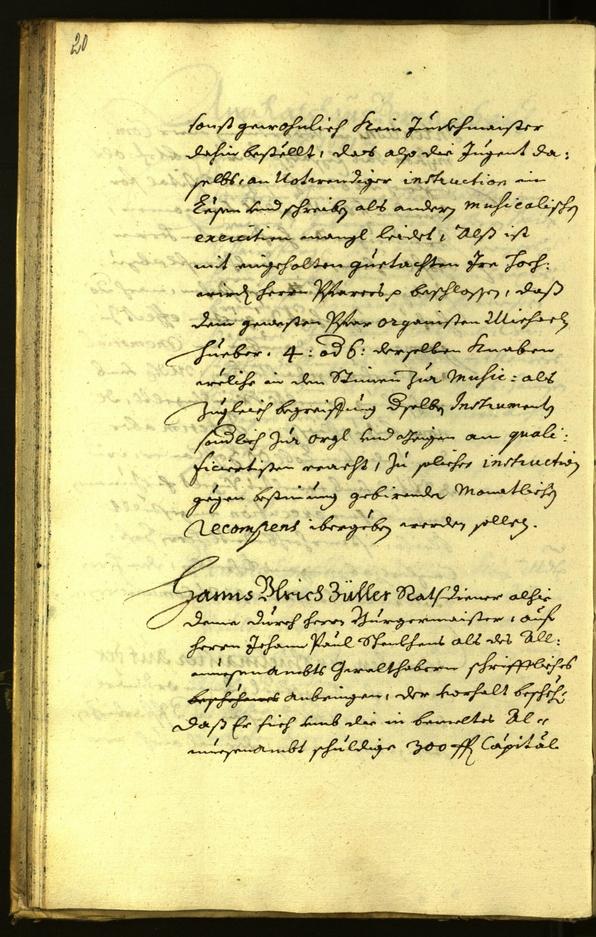 20
sonst gewohnlich kein Juncthmaister
dahin bestellt, das also die Jugent da:
selbs, an Notwendiger instruction im
Lesen und schreiben als andern musicalischen
exercitien mangl leidet, Alß ist
mit eingeholten guetachten Ire hoch:
würd herrn Pfarrers beschlossen, daß
dem gewesten Pfar organisten Michaeln
Hueber, 4: od 6: derselben Knaben
welche in den Stimen zur Music: als
zugleich begreiffung dselben Instrumenten
sondlich zur orgl und geigen am quali:
ficiertisten macht, zu solicher instruction
gegen bestimung gebirender Monatlichen
Recompens ibergeben werden sollen.
Hanns Ulrich Züller Rathsdiener alhie
deme durch herrn Burgermaister, auf
herrn Johann Paul als des All:
muesenambts Gewalthabern schrifftliches
beschehenes anbringen, der vorhalt besch:
daß Er sich umb die in bemeltes Al=
muesenambt schuldige 300 ff Capital